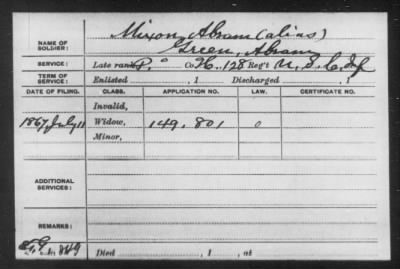 NAME OF SOLDIER: Mixon, Abram (alias)
Green, Abram
SERVICE: Late rank P. Co. H. 128 Reg't U. S. C. Inf
TERM OF SERVICE: Enlisted , 1 Discharged , 1
DATE OF FILING. CLASS. APPLICATION NO. LAW. CERTIFICATE NO.
Invalid,
1867 July 11 Widow, 149,801 0
Minor,
ADDITIONAL SERVICES:
REMARKS:
Died , 1 , at